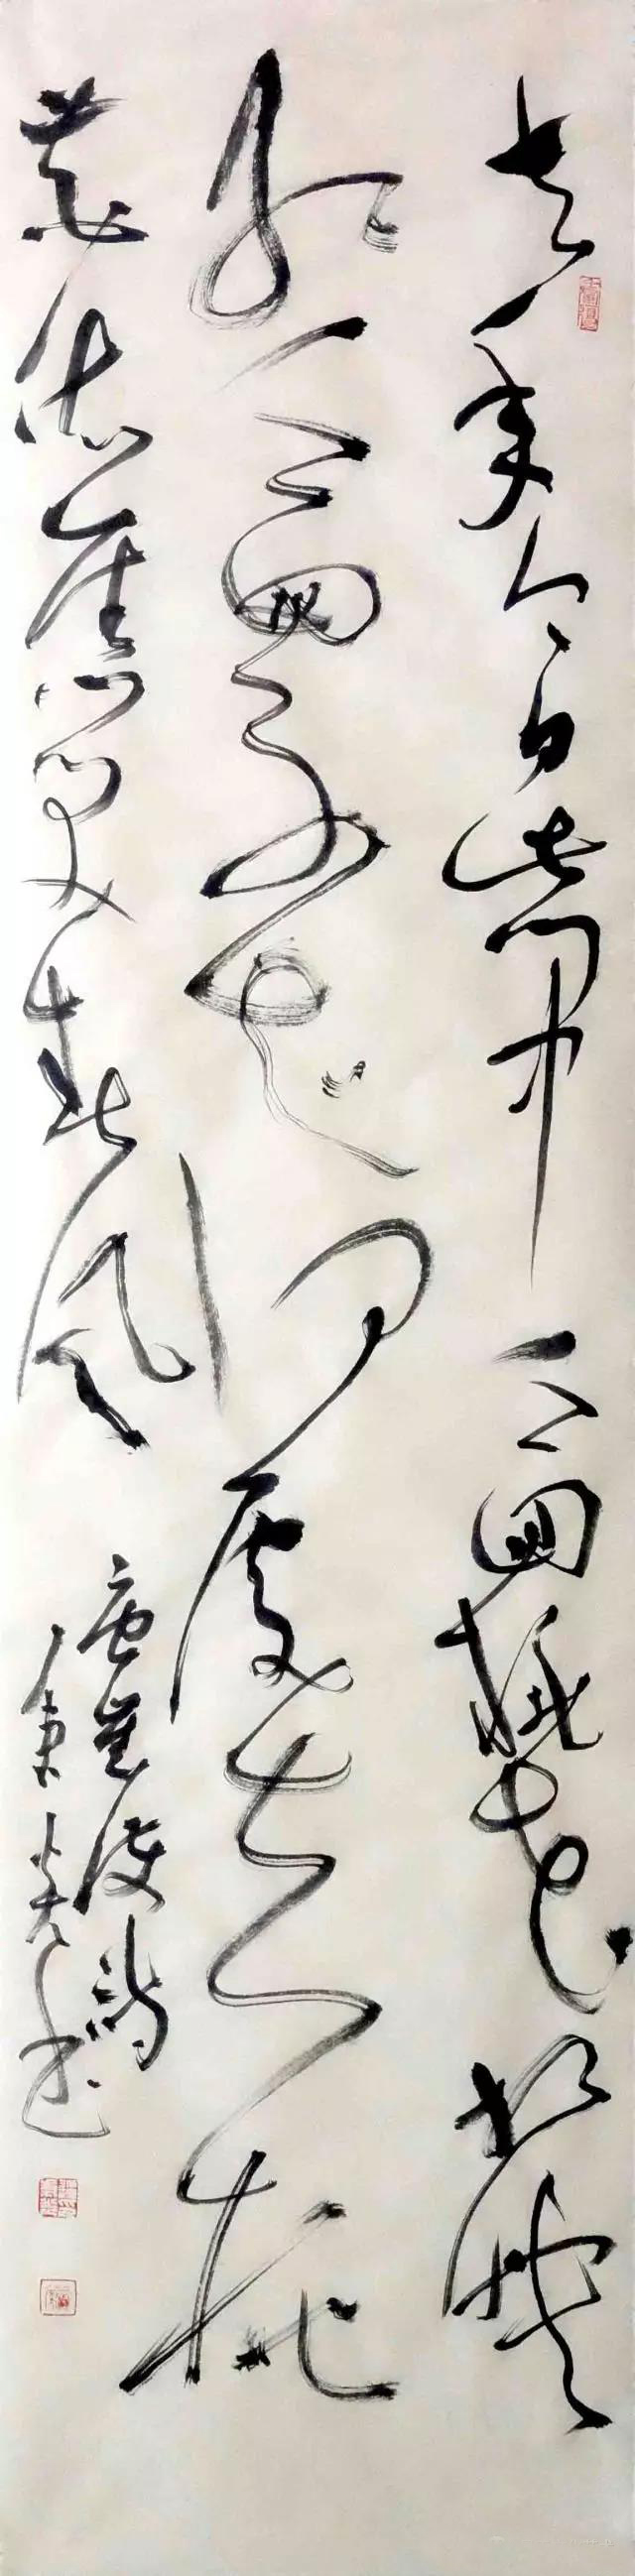 去年今日此門中人面桃花相映
紅人面不知何處去桃
花依舊笑春風
唐崔護詩